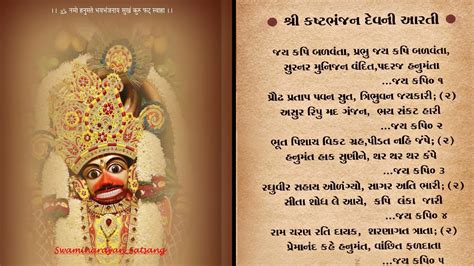 ।। ૐ नमो हनुमते भयभंजनाय सुखं कुरु फट् स्वाहा ।।
Swaminarayan Satsang
શ્રી કષ્ટભંજન દેવની આરતી
જય કપિ બળવંતા, પ્રભુ જય કપિ બળવંતા,
સુરનર મુનિજન વંદિત,પદરજ હનુમંતા
...જય કપિ૦ ૧
પ્રૌઢ પ્રતાપ પવન સુત, ત્રિભુવન જયકારી; (૨)
અસુર રિપુ મદ ગંજન, ભય સંકટ હારી
...જય કપિ૦ ૨
ભૂત પિશાચ વિકટ ગ્રહ,પીડત નહિ જંપે; (૨)
હનુમંત હાક સુણીને, થર થર થર કંપે
...જય કપિ ૩
રઘુવીર સહાય ઓળંગ્યો, સાગર અતિ ભારી; (૨)
સીતા શોધ લે આયે, કપિ લંકા જારી
...જય કપિ ૪
રામ ચરણ રતિ દાયક, શરણાગત ત્રાતા; (૨)
પ્રેમાનંદ કહે હનુમંત, વાંછિત ફળદાતા
...જય કપિ ૫